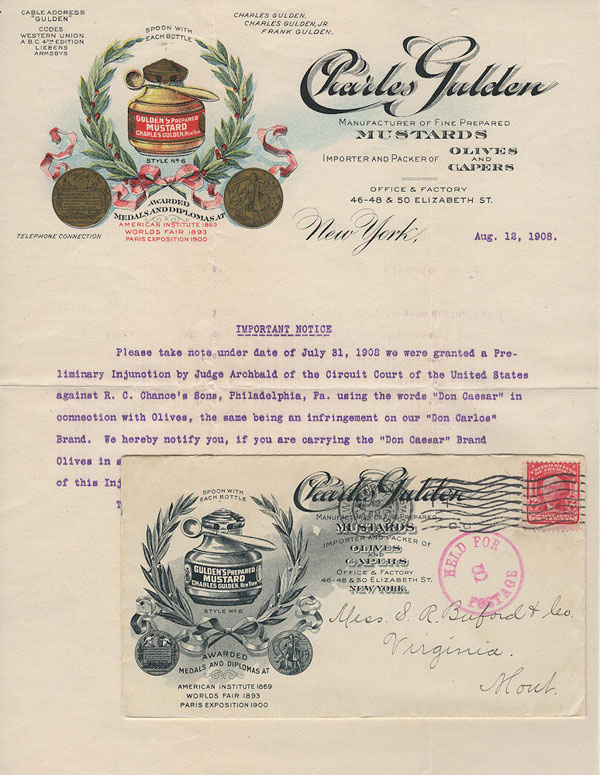 CABLE ADDRESS
"GULDEN"
CODES
WESTERN UNION
A.B.C. 4TH EDITION
LIEBERS
ARMSBYS
SPOON WITH
EACH BOTTLE
CHARLES GULDEN.
CHARLES GULDEN, JR
FRANK GULDEN.
GULDEN'S PREPARED
MUSTARD
CHARLES GULDEN, New York
STYLE No 6
AWARDED
MEDALS AND DIPLOMAS AT
AMERICAN INSTITUTE 1869
WORLDS FAIR 1893
PARIS EXPOSITION 1900
TELEPHONE CONNECTION
Charles Gulden
MANUFACTURER OF FINE PREPARED
MUSTARDS
IMPORTER AND PACKER OF OLIVES AND CAPERS
OFFICE & FACTORY
46-48 & 50 ELIZABETH ST.
New York, Aug. 12, 1908.
IMPORTANT NOTICE
Please take note under date of July 31, 1908 we were granted a Pre-
liminary Injunction by Judge Archbald of the Circuit Court of the United States
against R. C. Chance's Sons, Philadelphia, Pa. using the words "Don Caesar" in
connection with Olives, the same being an infringement on our "Don Carlos"
Brand. We hereby notify you, if you are carrying the "Don Caesar" Brand
Olives in s
of this Inj
T
SPOON WITH
EACH BOTTLE
GULDEN'S PREPARED
MUSTARD
CHARLES GULDEN, New York
STYLE No 6
AWARDED
MEDALS AND DIPLOMAS AT
AMERICAN INSTITUTE 1869
WORLDS FAIR 1893
PARIS EXPOSITION 1900
Charles Gulden
MANUFACTURER OF FINE PREPARED
MUSTARDS
IMPORTER AND PACKER OF
OLIVES
AND
CAPERS
OFFICE & FACTORY
46-48 & 50 ELIZABETH ST.
NEW YORK.
HELD FOR
8
POSTAGE
Mess. S. R. Buford & Co.
Virginia.
Mont.